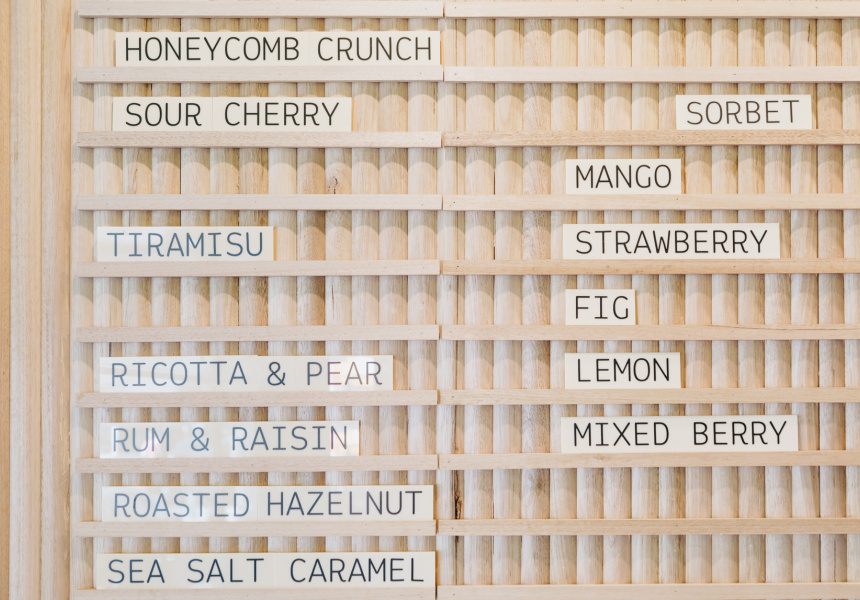 HONEYCOMB CRUNCH
SOUR CHERRY
TIRAMISU
RICOTTA & PEAR
RUM & RAISIN
ROASTED HAZELNUT
SEA SALT CARAMEL
SORBET
MANGO
STRAWBERRY
FIG
LEMON
MIXED BERRY